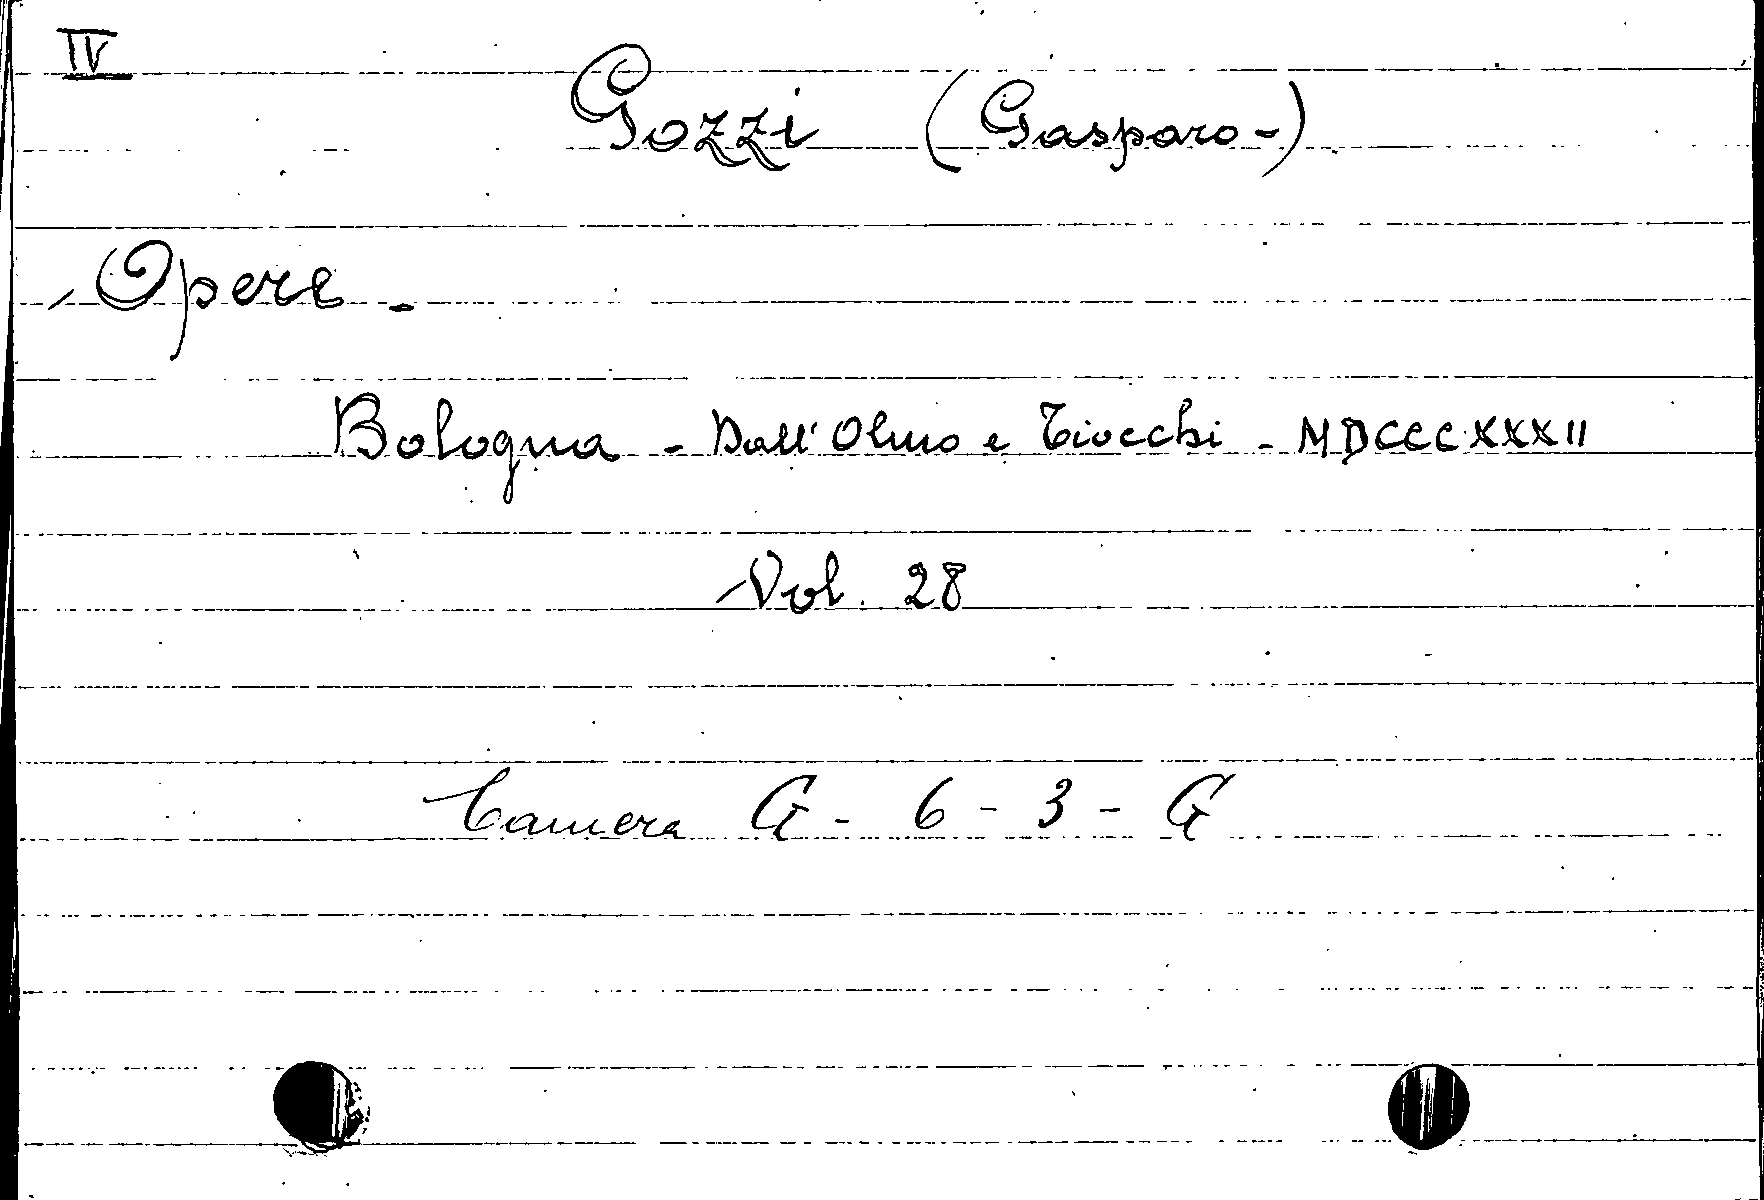 IV
Gozzi (Gasparo-)
Opere -
Bologna - Dall'Olmo e Tiocchi - MDCCCXXXII
Vol. 28
Camera G - 6 - 3 - G